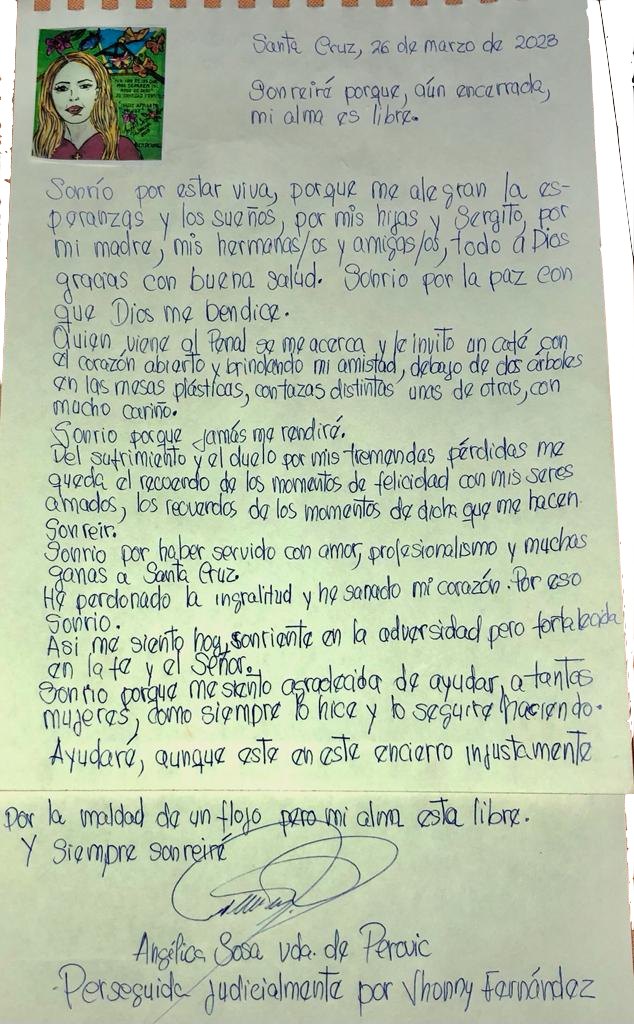 Santa Cruz, 26 de marzo de 2023
Sonreiré porque, aún encerrada,
mi alma es libre.
Sonrío por estar viva, porque me alegran la es-
peranzas y los sueños, por mis hijas y Sergito, por
mi madre, mis hermanas/os y amigas/os, todo a Dios
gracias con buena salud. Sonrio por la paz con
que Dios me bendice.
Quien viene al Penal se me acerca y le invito un café con
el corazón abierto y brindando mi amistad, debajo de dos árboles
en las mesas plásticas, con tazas distintas unas de otras, con
mucho cariño.
Sonrio porque jamás me rendiré.
Del sufrimiento y el duelo por mis tremendas pérdidas me
queda el recuerdo de los momentos de felicidad con mis seres
amados, los recuerdos de los momentos de dicha que me hacen
Sonreir.
Sonrio por haber servido con amor, profesionalismo y muchas
ganas a Santa Cruz.
He perdonado la ingratitud y he sanado mi corazón. Por eso
Sonrio.
Asi me siento hoy, sonriente en la adversidad pero fortalecida
en la fe y el Señor.
Sonrio porque me siento agradecida de ayudar, a tantas
mujeres, como siempre lo hice y lo seguire haciendo.
Ayudaré, aunque este en este encierro injustamente
Por la maldad de un flojo pero mi alma esta libre.
Y siempre sonreiré
Angélica Sosa vda. de Perovic
Perseguida judicialmente por Jhonny Fernández